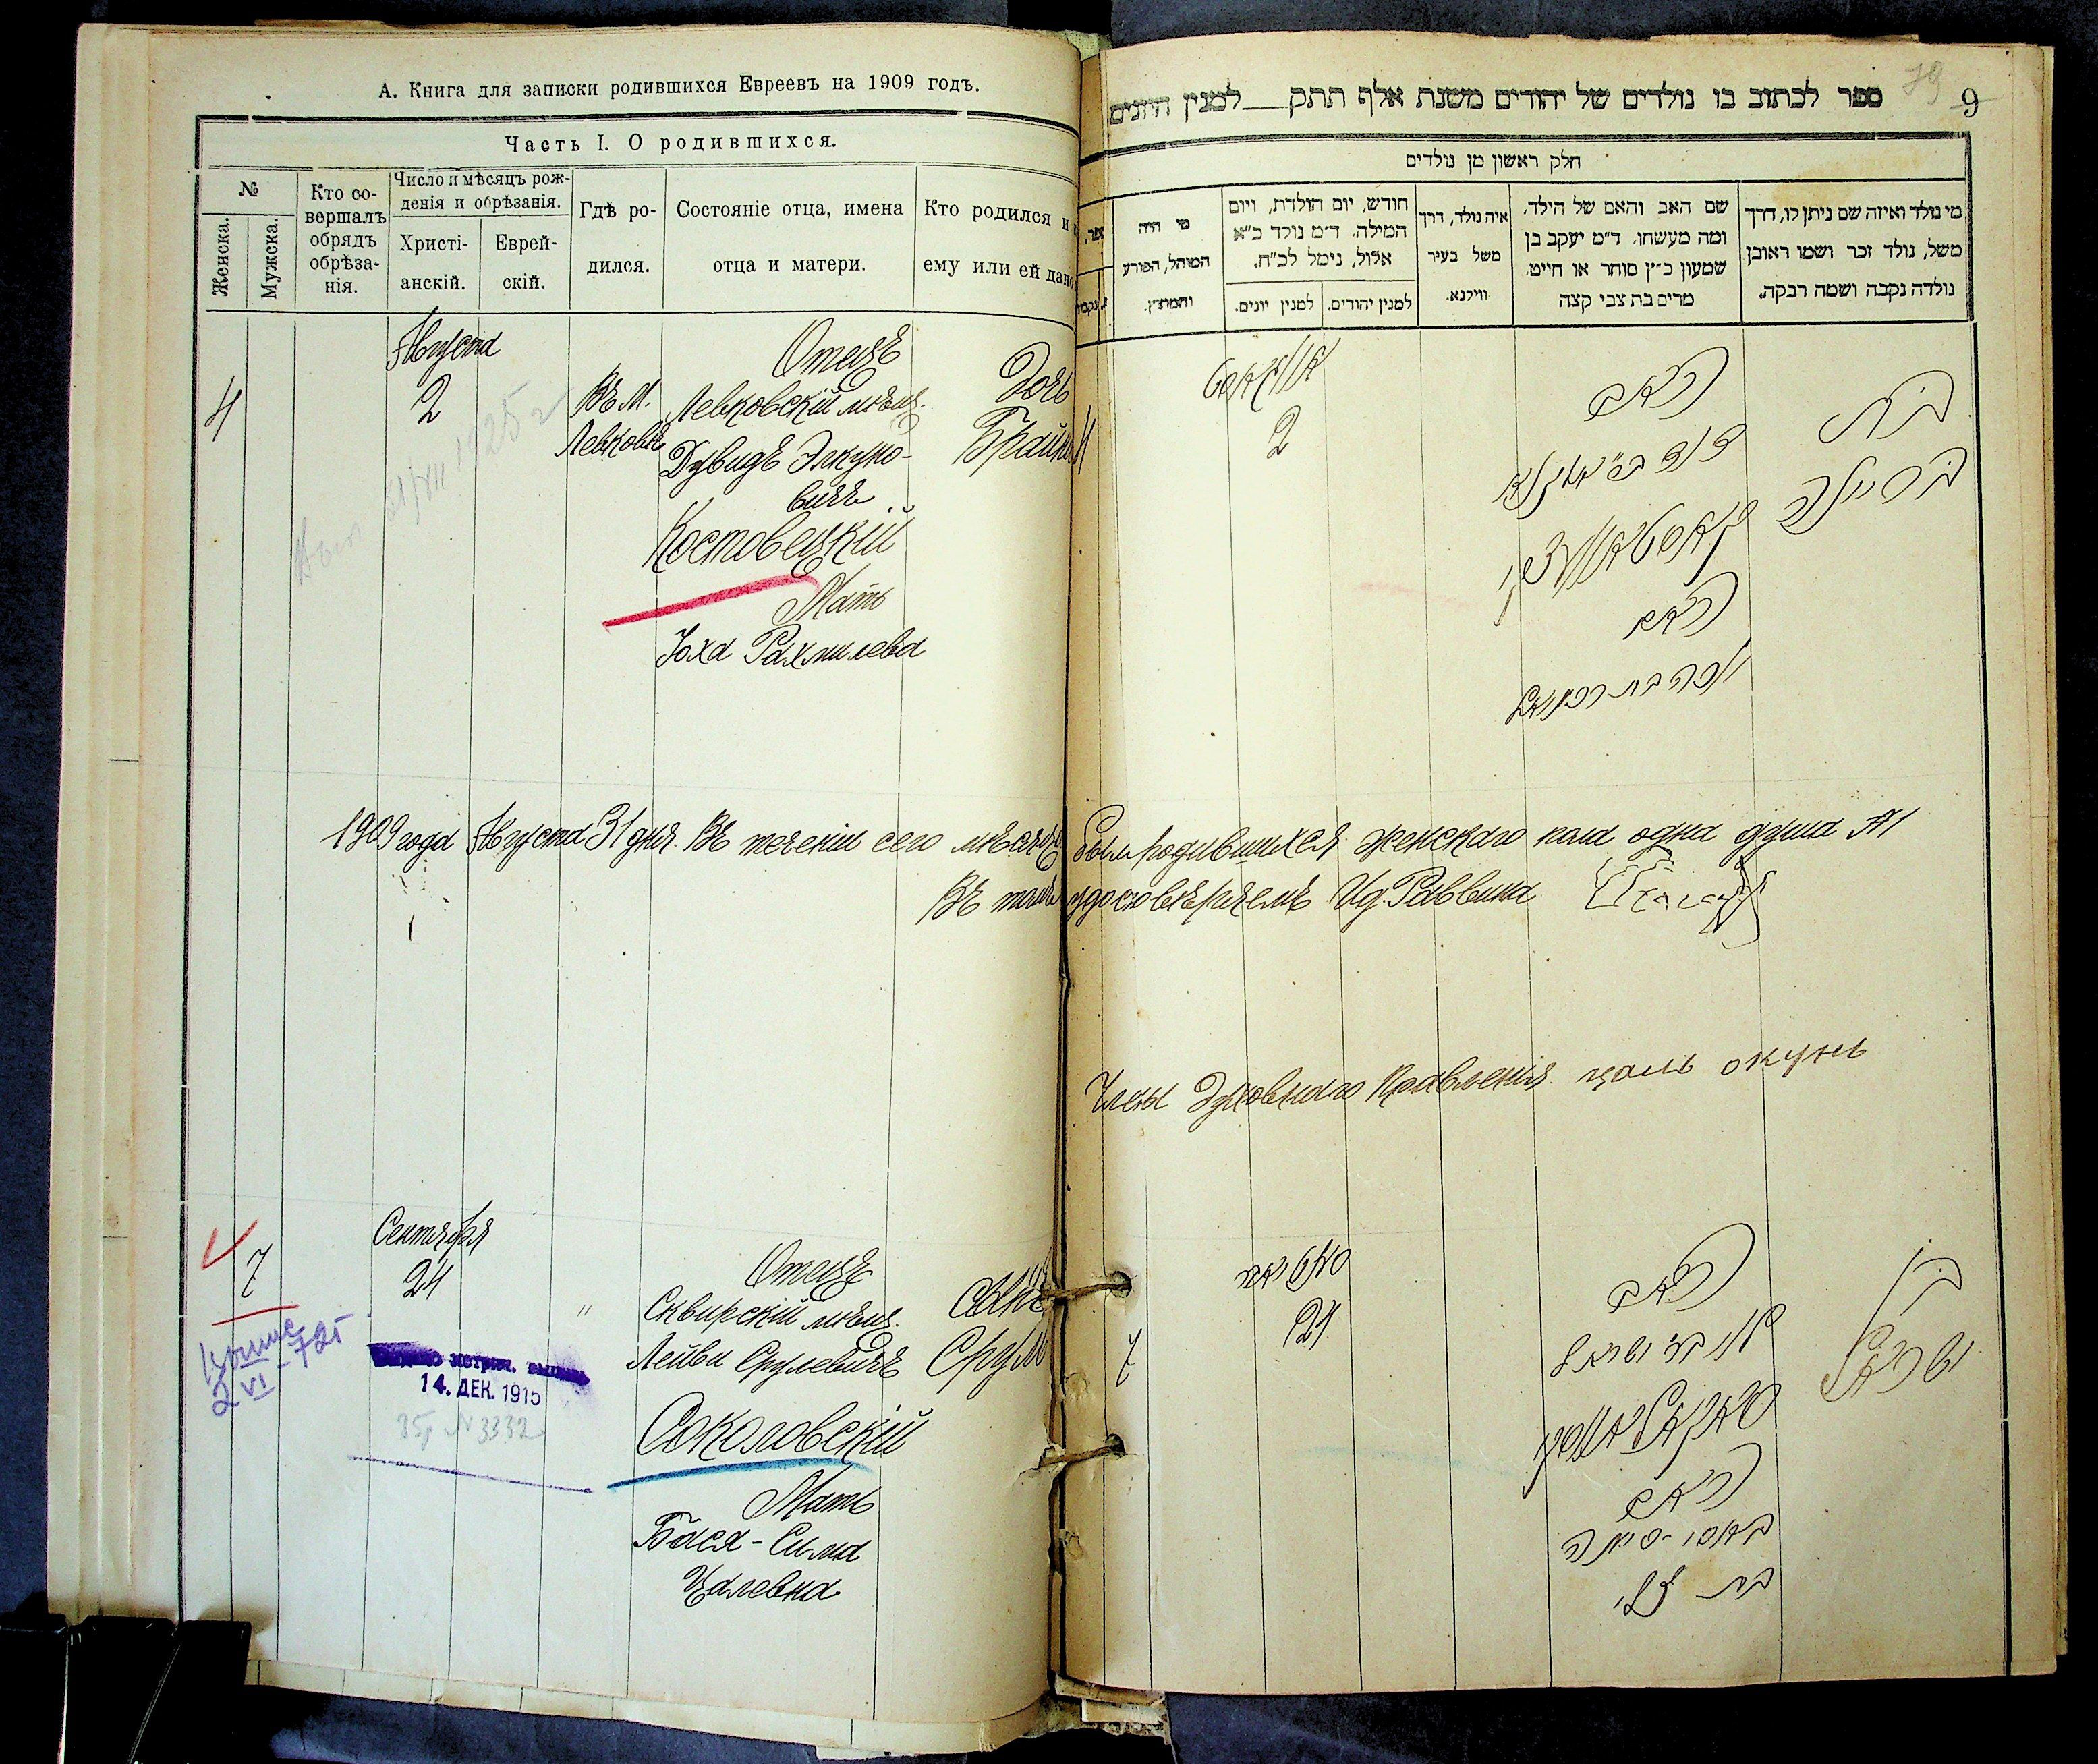 А. Книга для записки родившихся Евреевъ на 1909 годъ.
Часть I. О родившихся.
№
Женска.
Мужска.
Кто со-
вершалъ
обрядъ
обрѣза-
нія.
Число и мѣсяцъ рож-
денія и обрѣзанія.
Христі-
анскій.
Еврей-
скій.
Гдѣ ро-
дился.
Состояніе отца, имена
отца и матери.
Кто родился и
ему или ей дано
Августа
4
2
Въ М.
Левковкѣ
Отецъ
Левковскій мѣщ.
Дувидъ Элкуно-
вичъ
Костовецкій
Мать
Хоха Рахмилева
дочь
Брайна
1925
1909 года Августа 31 дня. Въ теченіи сего мѣсяца было родившихся женскаго пола одна душа
Въ томъ удостовѣряемъ И. д. Раввина
Члены Духовнаго Правленія цаль окунь
Сентября
7
24
"
Отецъ
Сквирскій мѣщ.
Лейви Срулевичъ
Соколовскій
Мать
Бася-Сима
Цалевна
сынъ
Сруль
2 VI - 725
14. ДЕК. 1915
№ 3332
ספר לכתוב בו נולדים של יהודים משנת אלף תתק למנין היונים
79
9
חלק ראשון מן נולדים
מי נולד ואיזה שם ניתן לו, דרך
משל, נולד זכר ושמו ראובן
נולדה נקבה ושמה רבקה.
שם האב והאם של הילד,
ומה מעשהו. ד״מ יעקב בן
שמעון כ״ץ סוחר או חייט,
מרים בת צבי קצה
איה נולד, דרך
משל בעיר
ווילנא.
חודש, יום הולדת, ויום
המילה. ד״מ נולד כ״א
אלול, נימל לכ״ח.
למנין יהודים.
למנין יונים.
מי היה
המוהל, הפורע
והמוצץ.
אוגוסט
2
4
האב
דוד ב״ר אלקנא
קאסטאוועצקי
האם
חכה בת רחמיאל
בת
בריינה
סענטיאבר
24
7
האב
לוי בר׳ ישראל
סאקאלאווסקי
האם
באסי-סימה
בת צלי
בן
ישראל